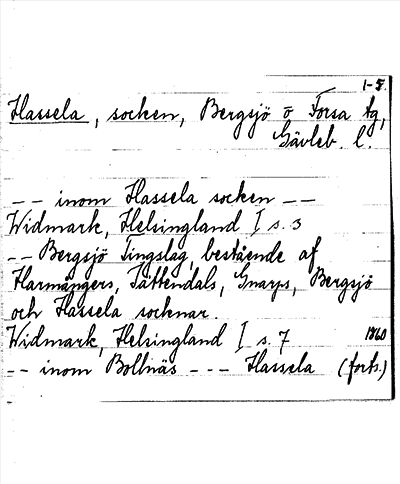 1-5.
Hassela, socken, Bergsjö o Forsa tg,
Gävleb. l.
-- inom Hassela socken --
Widmark, Helsingland I s. 3
-- Bergsjö Tingslag, bestående af
Harmångers, Jättendals, Gnarps, Bergsjö
och Hassela socknar.
Widmark, Helsingland I s. 7 1860
-- inom Bollnäs --- Hassela (forts.)